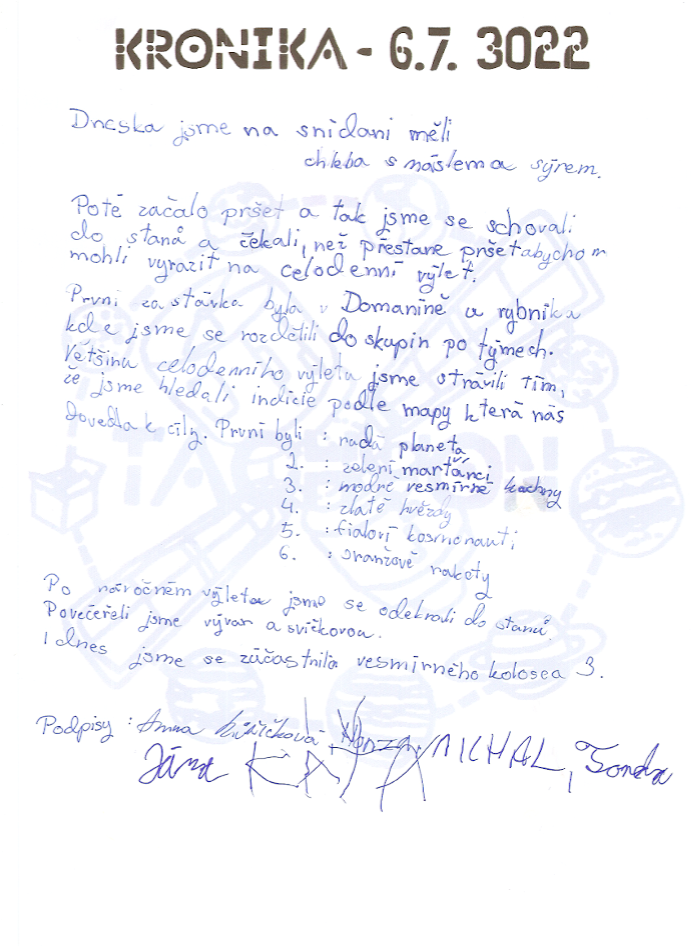 KRONIKA - 6.7. 3022
Dneska jsme na snídani měli
chleba s máslem a sýrem.
Poté začalo pršet a tak jsme se schovali
do stanů a čekali, než přestane pršet abychom
mohli vyrazit na celodenní výlet.
První zastávka byla v Domaníně u rybníka
kde jsme se rozdělili do skupin po týmech.
Většinu celodenního výletu jsme strávili tím,
že jsme hledali indicie podle mapy která nás
dovedla k cíly. První byli : rudá planeta
2. : zelení marťánci
3. : modré vesmírné kachny
4. : zlaté hvězdy
5. : fialoví kosmonauti
6. : oranžové rakety
Po náročném výletu jsme se odebrali do stanů.
Povečeřeli jsme vývar a svíčkovou.
I dnes jsme se zúčastnila vesmírného kolosea 3.
Podpisy : Anna Honza, MICHAL, Tonda
Jána KÁJA